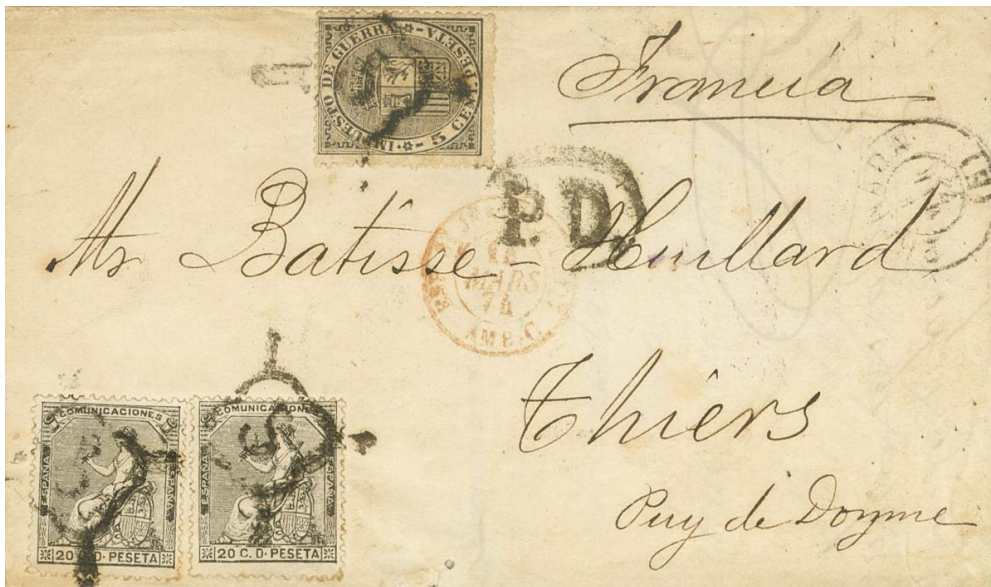 IMPUESTO DE GUERRA
5 CENT. PESETA
Francia
P.D.
Mr Batisse-Huillard
MARS
74
AMB. C.
Thiers
Puy de Dome
COMUNICACIONES
ESPAÑA
ESPAÑA
20 C. D. PESETA
COMUNICACIONES
ESPAÑA
ESPAÑA
20 C. D. PESETA